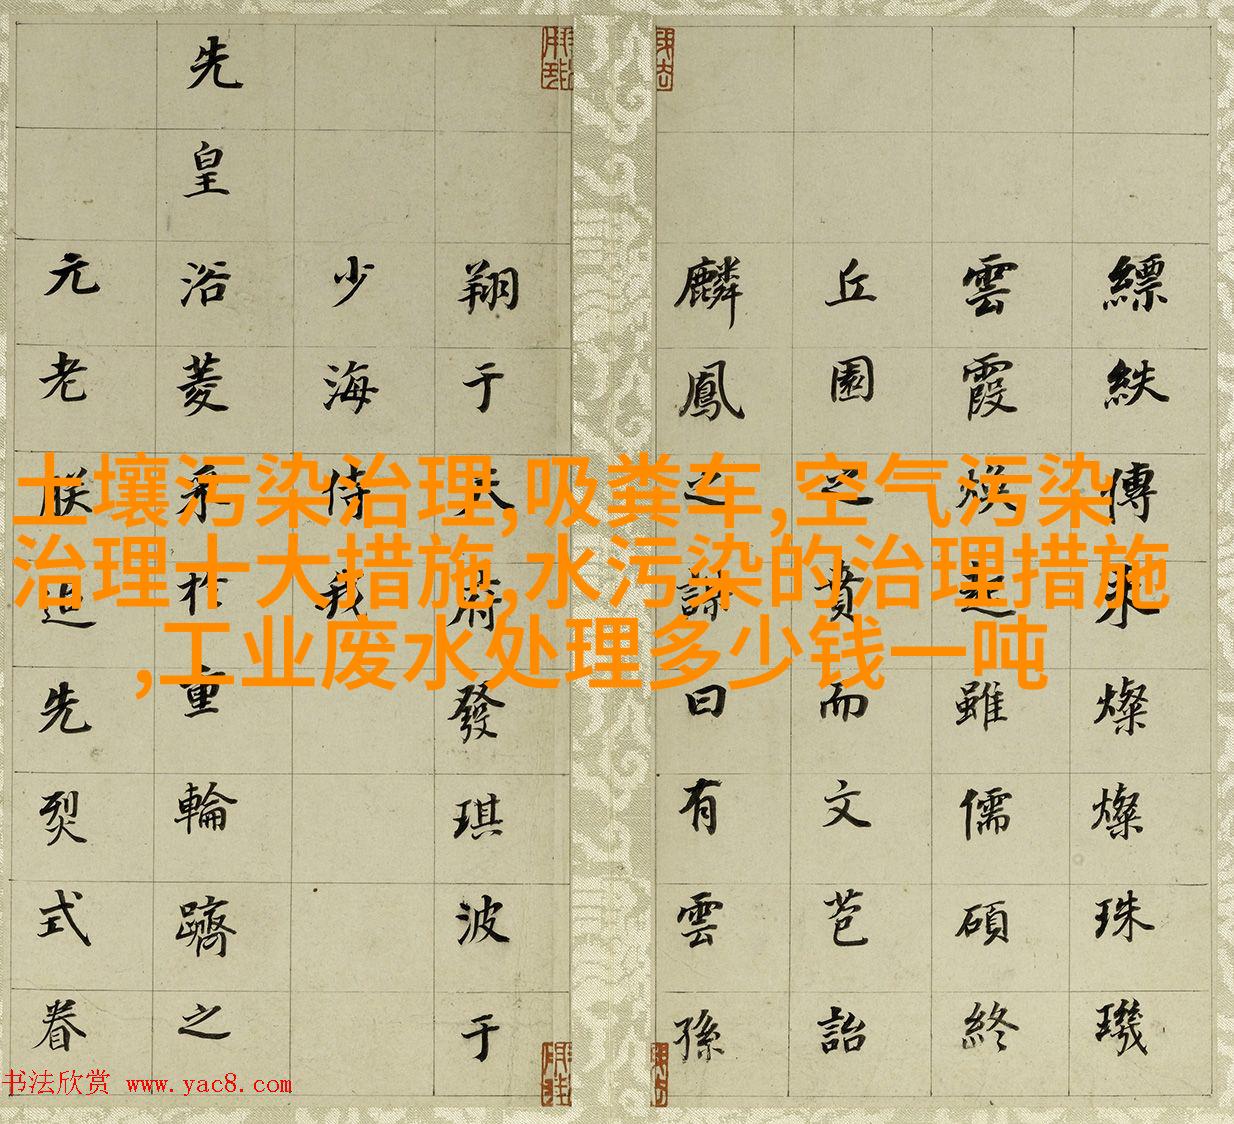 縹紩傳永燦燦珠璣
雲霞煥雖儒碩終
丘園之賁而文詒
麟鳳之曰有雲孫
翔于天府發琪波于
少海侍我
先皇浴菱於重輪躋之
元老朕迪先烈式眷
土壤污染治理,吸粪车,空气污染
治理十大措施,水污染的治理措施
,工业废水处理多少钱一吨
书法欣赏 www.yac8.com